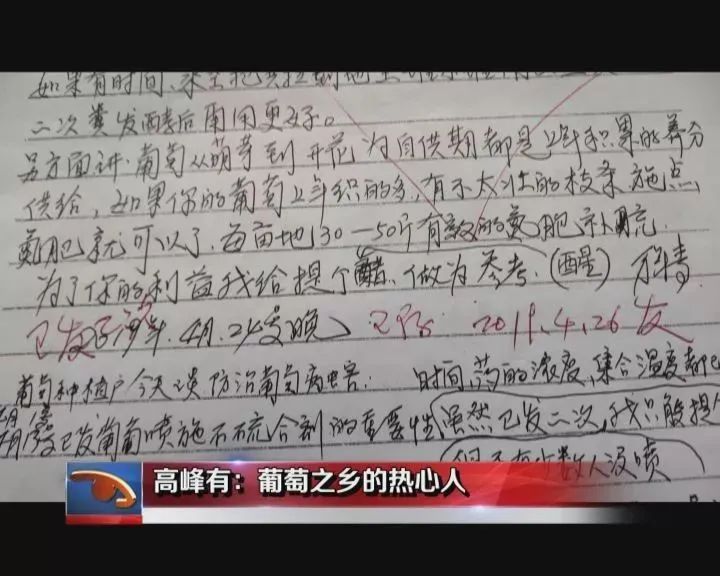 如果有时间
二次粪发酵后再用更好。
另方面讲:葡萄从萌芽到开花为自供期都是上年积累的养分
供给,如果你的葡萄上年积的多,有不太壮的枝条施点
氮肥就可以了,每亩地30—50斤有效的氮肥补充.
为了你的利益我给提个醒.做为参考.(醒)
已发 4月.24号晚 已阅 2019.4.26 友
葡萄种植户今天谈防治葡萄病虫害. 时间,药的浓度,集合温度都
已发葡萄喷施石硫合剂的重要性虽然已发二次,我只能提
但还有少数人没喷
高峰有:葡萄之乡的热心人